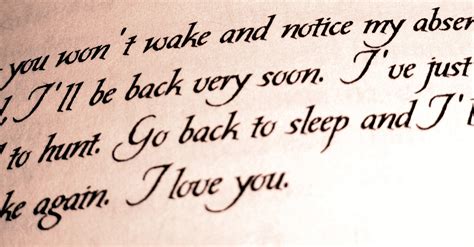 you won't wake and notice my absen
I'll be back very soon. I've just
to hunt. Go back to sleep and I'l
ke again. I love you.